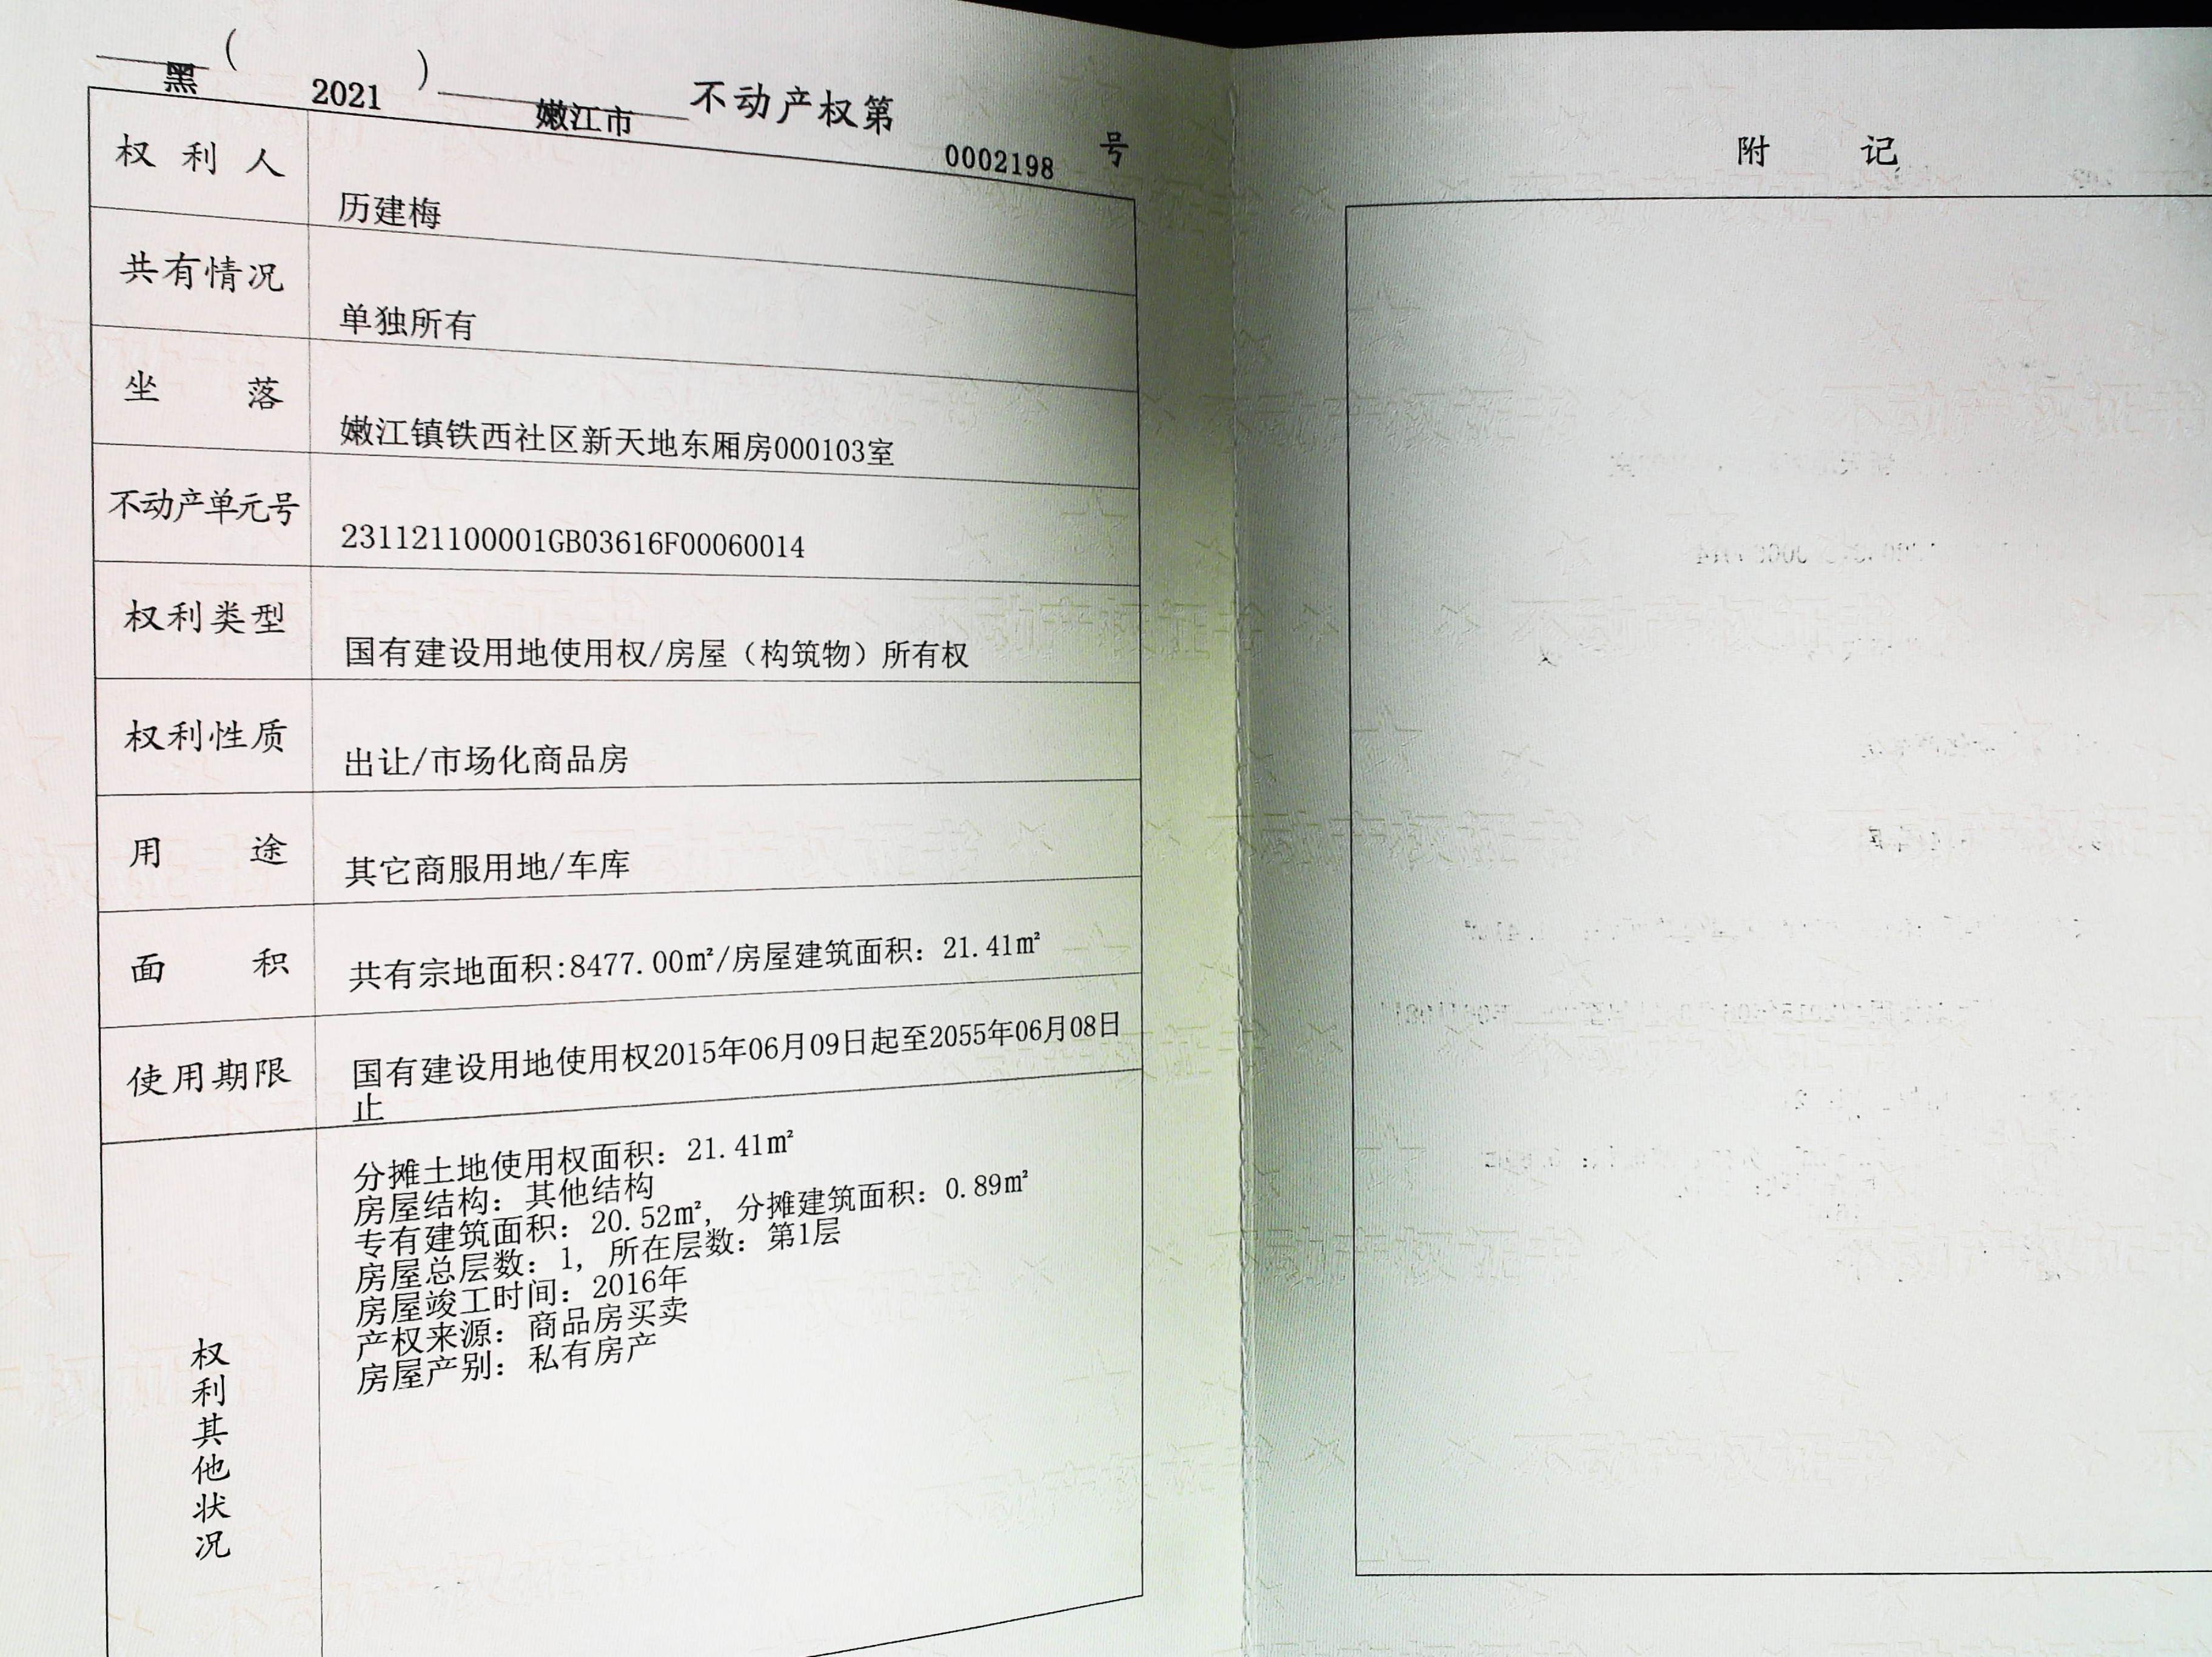 黑(2021)嫩江市不动产权第0002198号
权利人 历建梅
共有情况 单独所有
坐落 嫩江镇铁西社区新天地东厢房000103室
不动产单元号 231121100001GB03616F00060014
权利类型 国有建设用地使用权/房屋（构筑物）所有权
权利性质 出让/市场化商品房
用途 其它商服用地/车库
面积 共有宗地面积:8477.00㎡/房屋建筑面积：21.41㎡
使用期限 国有建设用地使用权2015年06月09日起至2055年06月08日
止
权利其他状况
分摊土地使用权面积：21.41㎡
房屋结构：其他结构
专有建筑面积：20.52㎡，分摊建筑面积：0.89㎡
房屋总层数：1，所在层数：第1层
房屋竣工时间：2016年
产权来源：商品房买卖
房屋产别：私有房产
附记